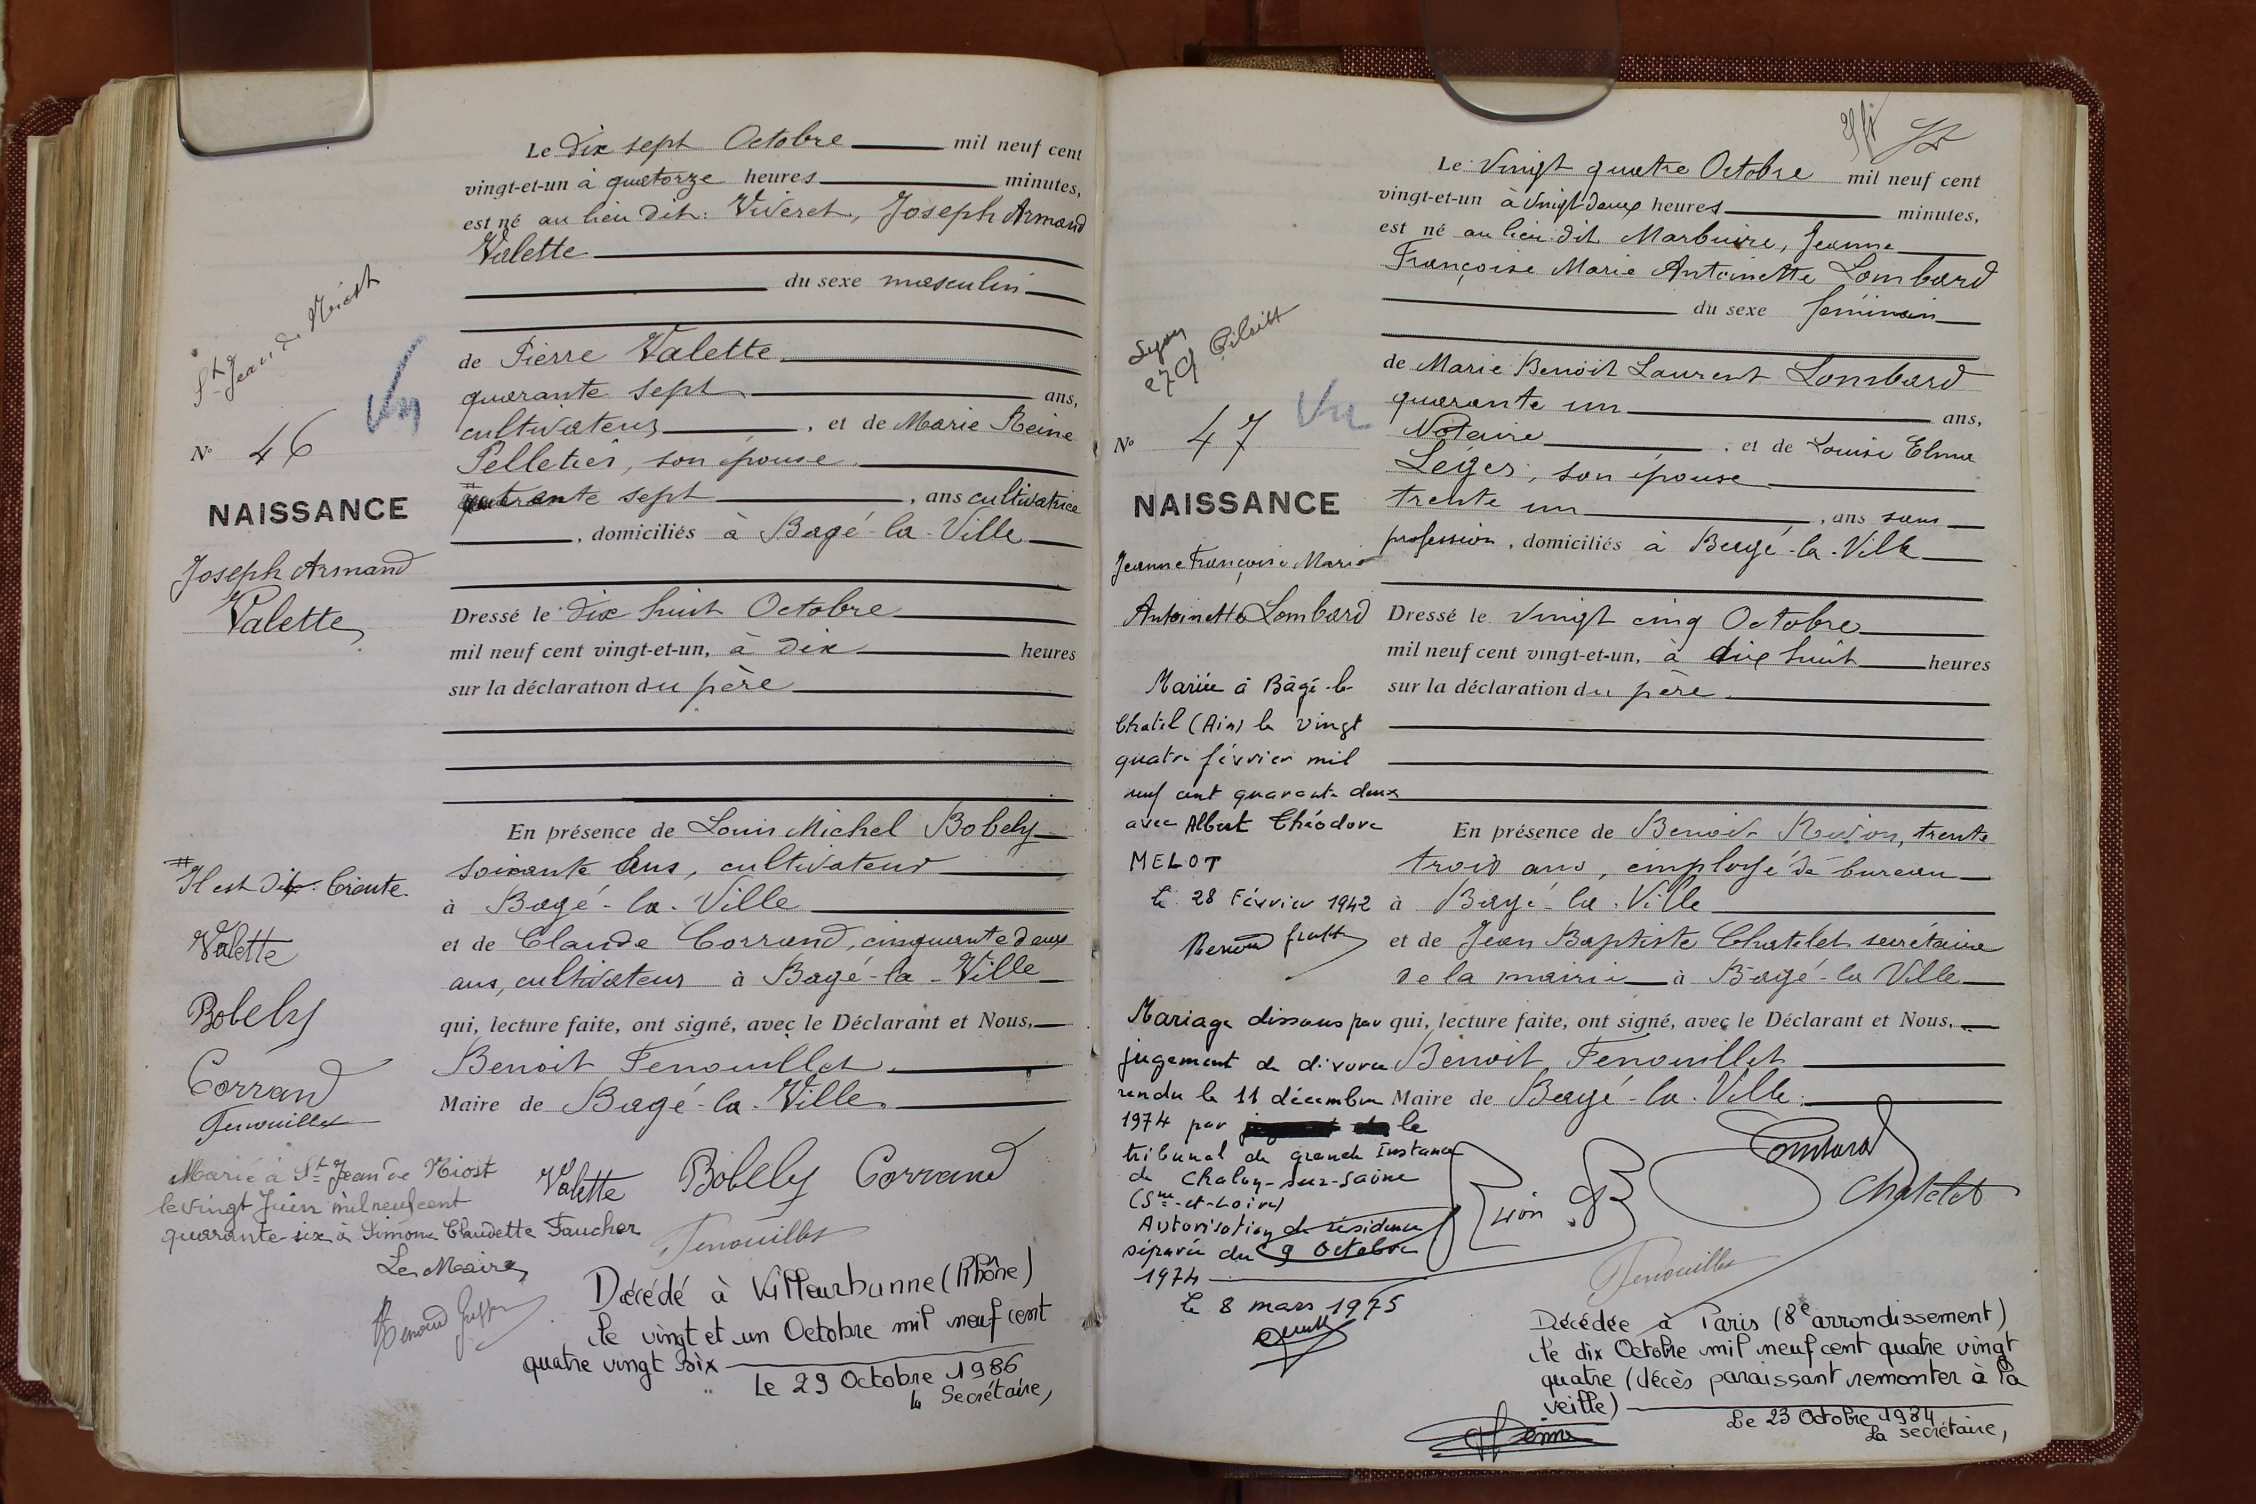 Le dix sept Octobre mil neuf cent
vingt-et-un à quatorze heures minutes,
est né au lieu dit: Viveret, Joseph Armand
Valette
du sexe masculin
de Pierre Valette
quarante sept ans,
cultivateur, et de Marie Reine
Pelletier, son épouse
quarante sept, ans cultivatrice
, domiciliés à Bagé-la-Ville
Dressé le dix huit Octobre
mil neuf cent vingt-et-un, à dix heures
sur la déclaration du père
En présence de Louis Michel Bobely
soixante ans, cultivateur
à Bagé-la-Ville
et de Claude Corrand, cinquante deux
ans, cultivateur à Bagé-la-Ville
qui, lecture faite, ont signé, avec le Déclarant et Nous,
Benoit Fenouillet
Maire de Bagé-la-Ville.
Valette Bobely Corrand
Fenouillet
Décédé à Villeurbanne (Rhône)
le vingt et un Octobre mil neuf cent
quatre vingt six
Le 29 Octobre 1986
la Secrétaire,
St Jean de Niost
Vu
No 46
NAISSANCE
Joseph Armand
Valette
Il est dit: trente.
Valette
Bobely
Corrand
Fenouillet
Marié à St Jean de Niost
le vingt Juin mil neuf cent
quarante-six à Simone Claudette Faucher
Le Maire,
Le Vingt quatre Octobre mil neuf cent
vingt-et-un à vingt deux heures minutes,
est né au lieu dit Marbuire, Jeanne
Françoise Marie Antoinette Lombard
du sexe féminin
de Marie Benoit Laurent Lombard
quarante un ans,
Notaire, et de Louise Elma
Léger, son épouse
trente un, ans sans
profession, domiciliés à Bagé-la-Ville
Dressé le vingt cinq Octobre
mil neuf cent vingt-et-un, à dix huit heures
sur la déclaration du père
En présence de Benoit trente
trois ans, employé de bureau
à Bagé-la-Ville
et de Jean Baptiste Chatelet secrétaire
de la mairie à Bagé-la Ville
qui, lecture faite, ont signé, avec le Déclarant et Nous,
Benoit Fenouillet
Maire de Bagé-la-Ville.
Lombard
Chatelet
Fenouillet
Décédée à Paris (8e arrondissement)
le dix Octobre mil neuf cent quatre vingt
quatre (décès paraissant remonter à la
veille)
Le 23 Octobre 1984
La secrétaire,
Lyon
Vu
No 47
NAISSANCE
Jeanne Françoise Marie
Antoinette Lombard
Mariée à Bâgé-le-
Chatel (Ain) le vingt
quatre février mil
neuf cent quarante deux
avec Albert Théodore
MELOT
le 28 Février 1942
Mariage dissous par
jugement de divorce
rendu le 11 décembre
1974 par le
tribunal de grande Instance
de Chalon-sur-Saône
(Sne-et-Loire)
Autorisation de résidence
séparée du 9 Octobre
1974
le 8 mars 1975